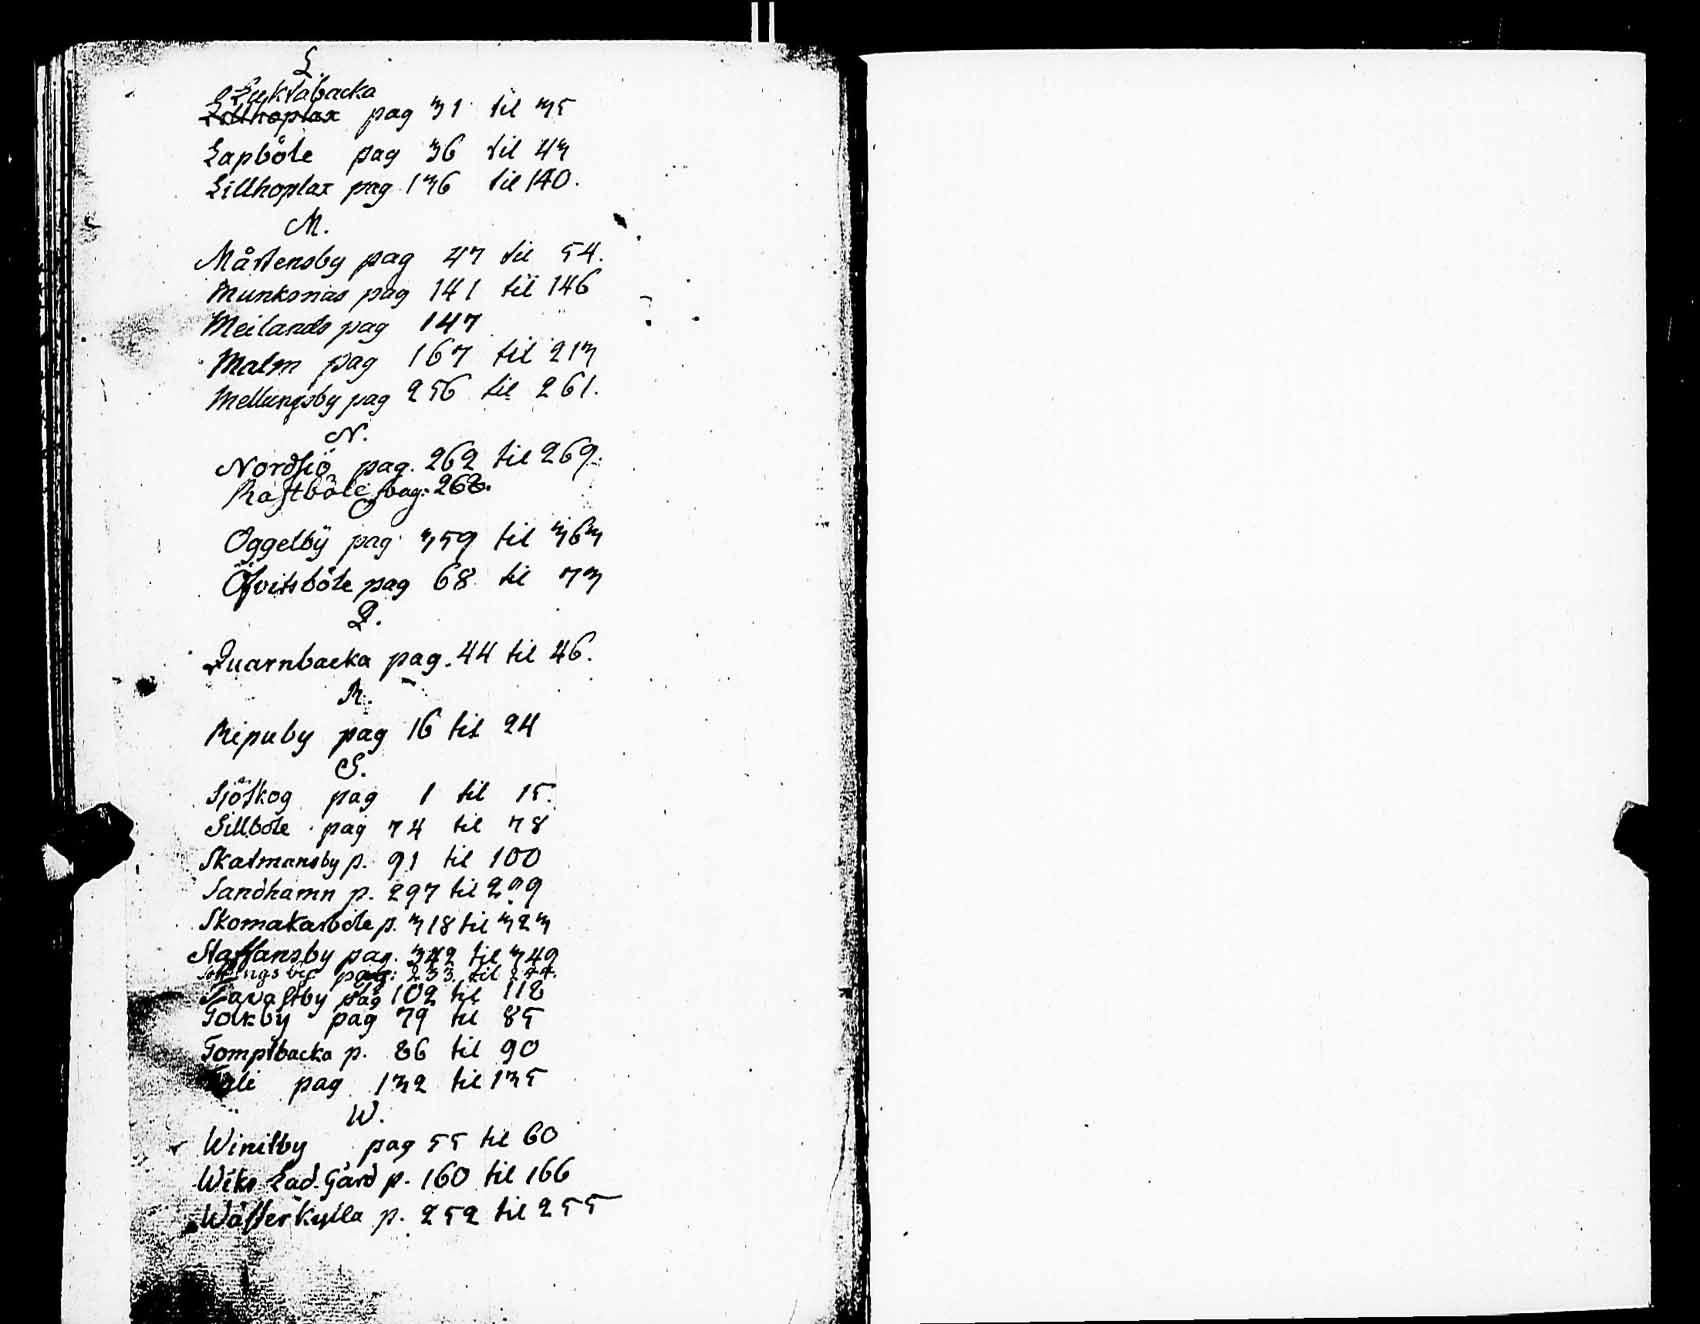 L.
Luktabacka
Lillhoplax pag 31 til 35
Lapböle pag 36 til 43
Lillhoplax pag 136 til 140.
M.
Mårtensby pag 47 til 54.
Munksnäs pag 141 til 146
Meilands pag 147
Malm pag 167 til 213
Mellungsby pag 256 til 261.
N.
Nordsjö pag. 262 til 269.
Rastböle pag: 268.
O
Oggelbÿ pag 359 til 363
Öfvitsböle pag 68 til 73
Q.
Quarnbacka pag. 44 til 46.
R.
Ripuby pag 16 til 24
S.
Sjöskog pag 1 til 15.
Sillböle pag 74 til 78
Skatmansby p. 91 til 100
Sandhamn p. 297 til 299
Skomakarböle p. 318 til 323
Staffansby pag. 342 til 349
pag: 233 til 244.
Tavastby pag 102 til 118
Tolkby pag 79 til 85
Tomptbacka p. 86 til 90
pag 132 til 135
W.
Winikby pag 55 til 60
Wiks Lad. Gård p. 160 til 166
Wästerkulla p. 252 til 255